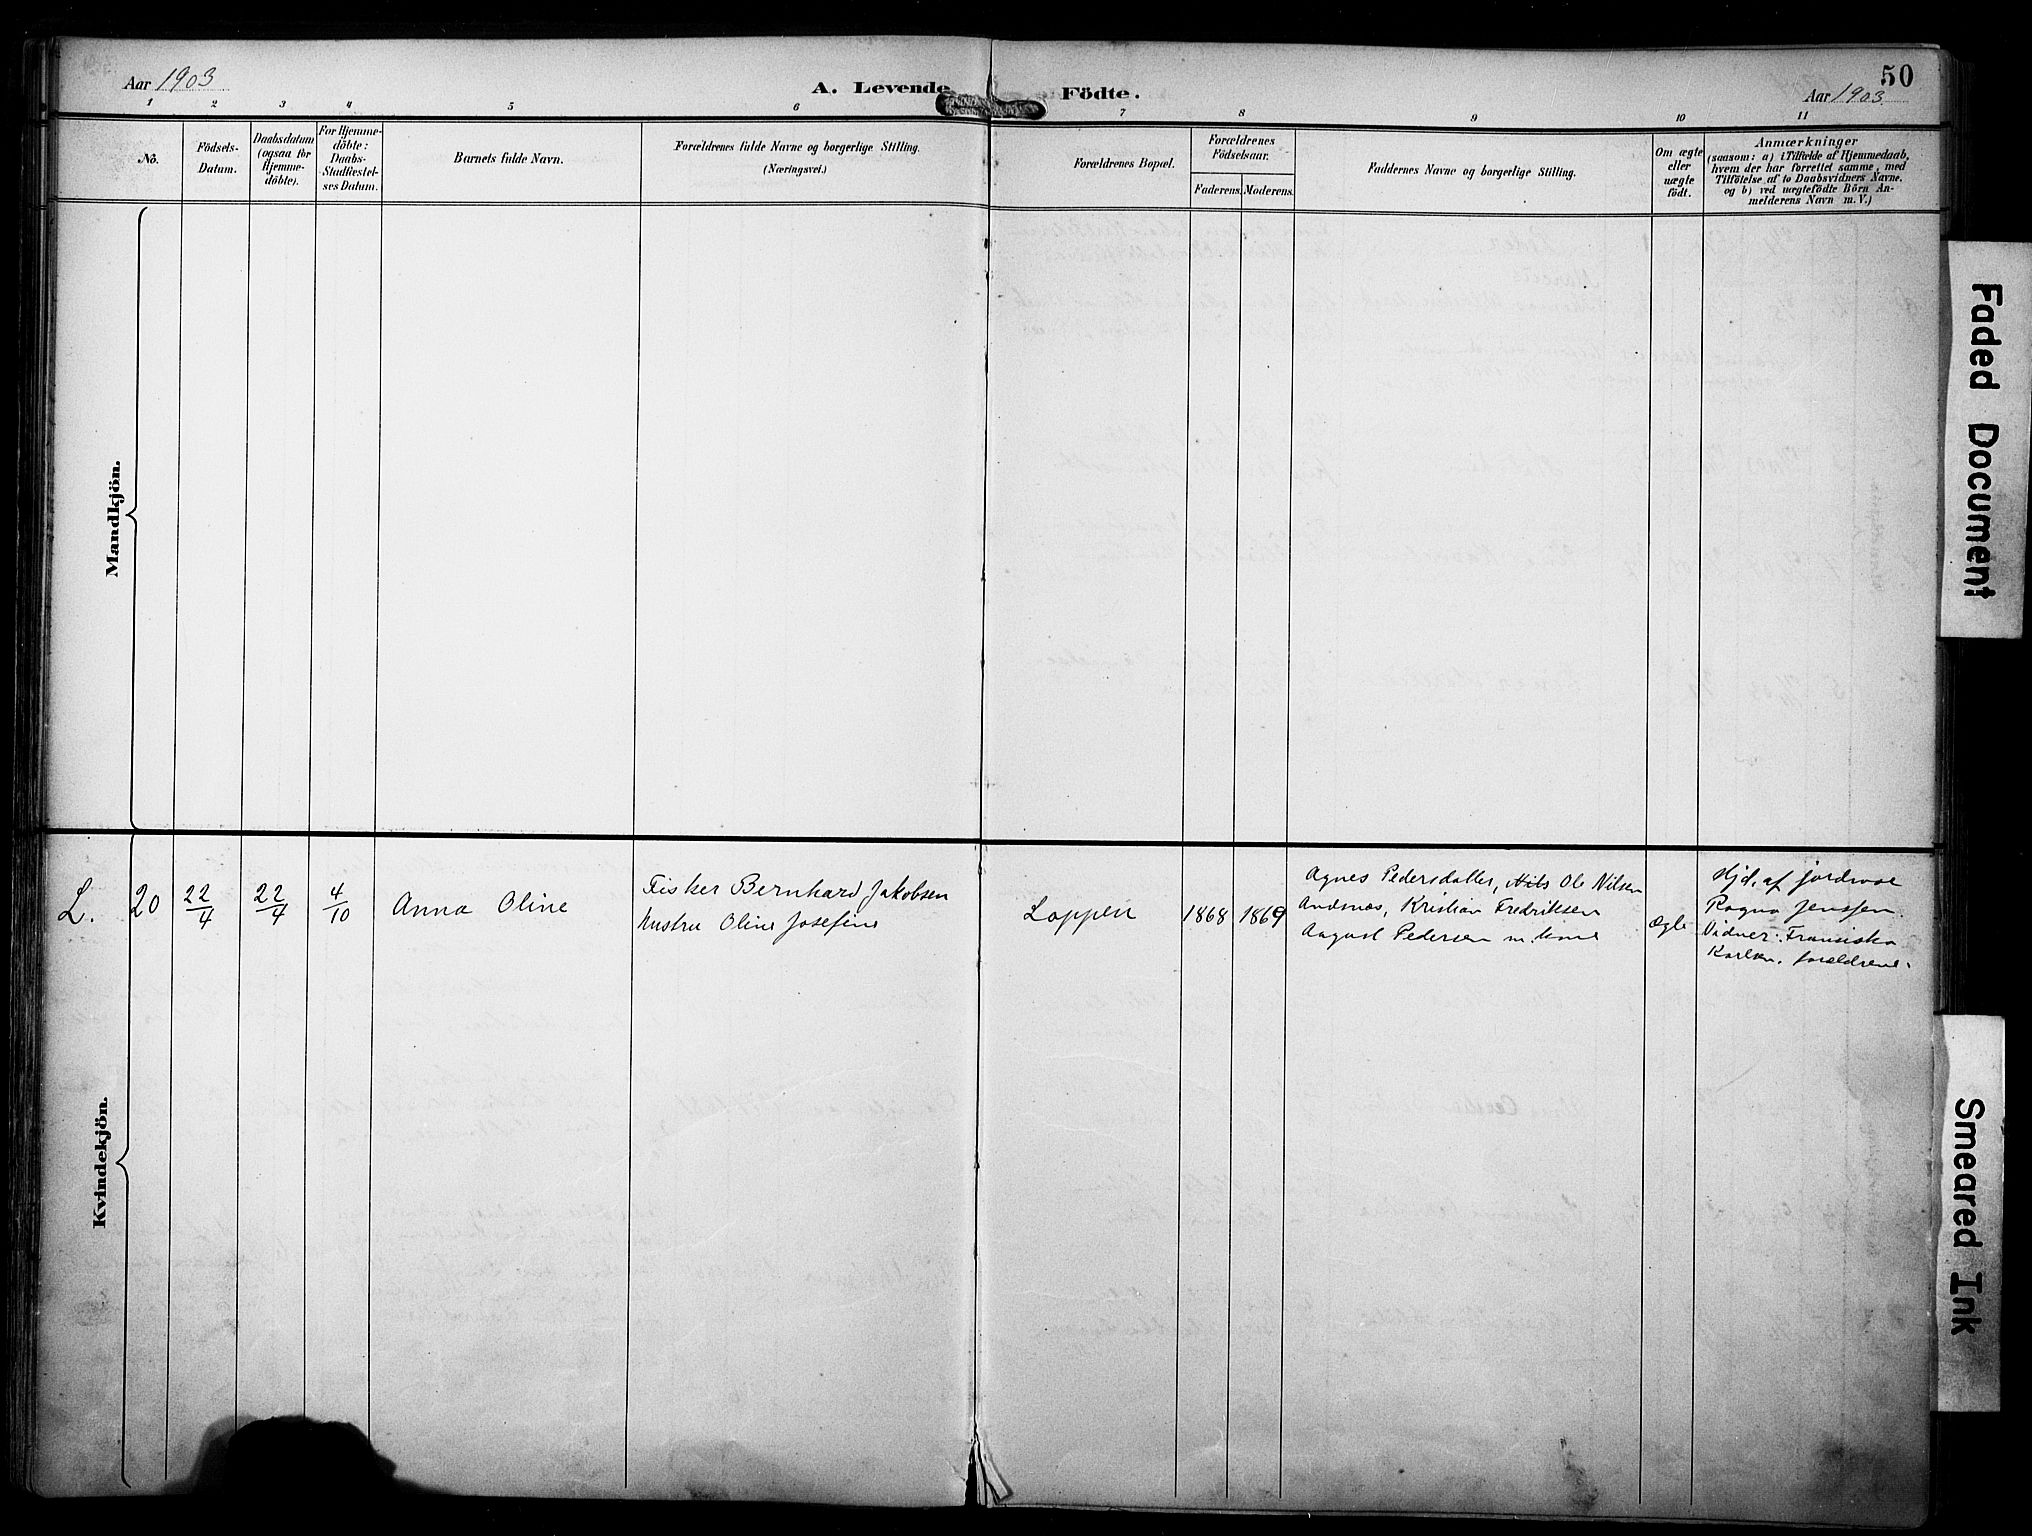 50
Aar 1903
A. Levende Födte.
Aar 1903
1 2 3 4 5 6 7 8 9 10 11
No.
Födsels-
Datum.
Daabsdatum
(ogsaa for
Hjemme-
döbte).
For Hjemme-
döbte:
Daabs-
Stadfæstel-
ses Datum.
Barnets fulde Navn.
Forældrenes fulde Navne og borgerlige Stilling.
(Næringsvei.)
Forældrenes Bopæl.
Forældrenes
Födselsaar.
Faderens.
Moderens.
Faddernes Navne og borgerlige Stilling.
Om ægte
eller
uægte
født.
Anmærkninger
(saasom: a) i Tilfælde af Hjemmedaab,
hvem der har forrettet samme, med
Tilføielse af to Daabsvidners Navne.
og b) ved uægtefödte Börn An-
melderens Navn m. V.)
Mandkjön.
Kvindekjön.
L. 20 22/4 22/4 4/10 Anna Oline
Fisker Bernhard Jakobsen
Hustru Oline Josefine
Loppen 1868 1869
Agnes Pedersdatter, Nils Ole Nilsen
Andsnæs, Kristian Fredriksen
August Pedersen m. kone
Ægte
Hjd. af jordmor
Ragna Jenssen.
Vidner: Fransiska
Karlsen, forældrene.
Faded Document
Smeared Ink